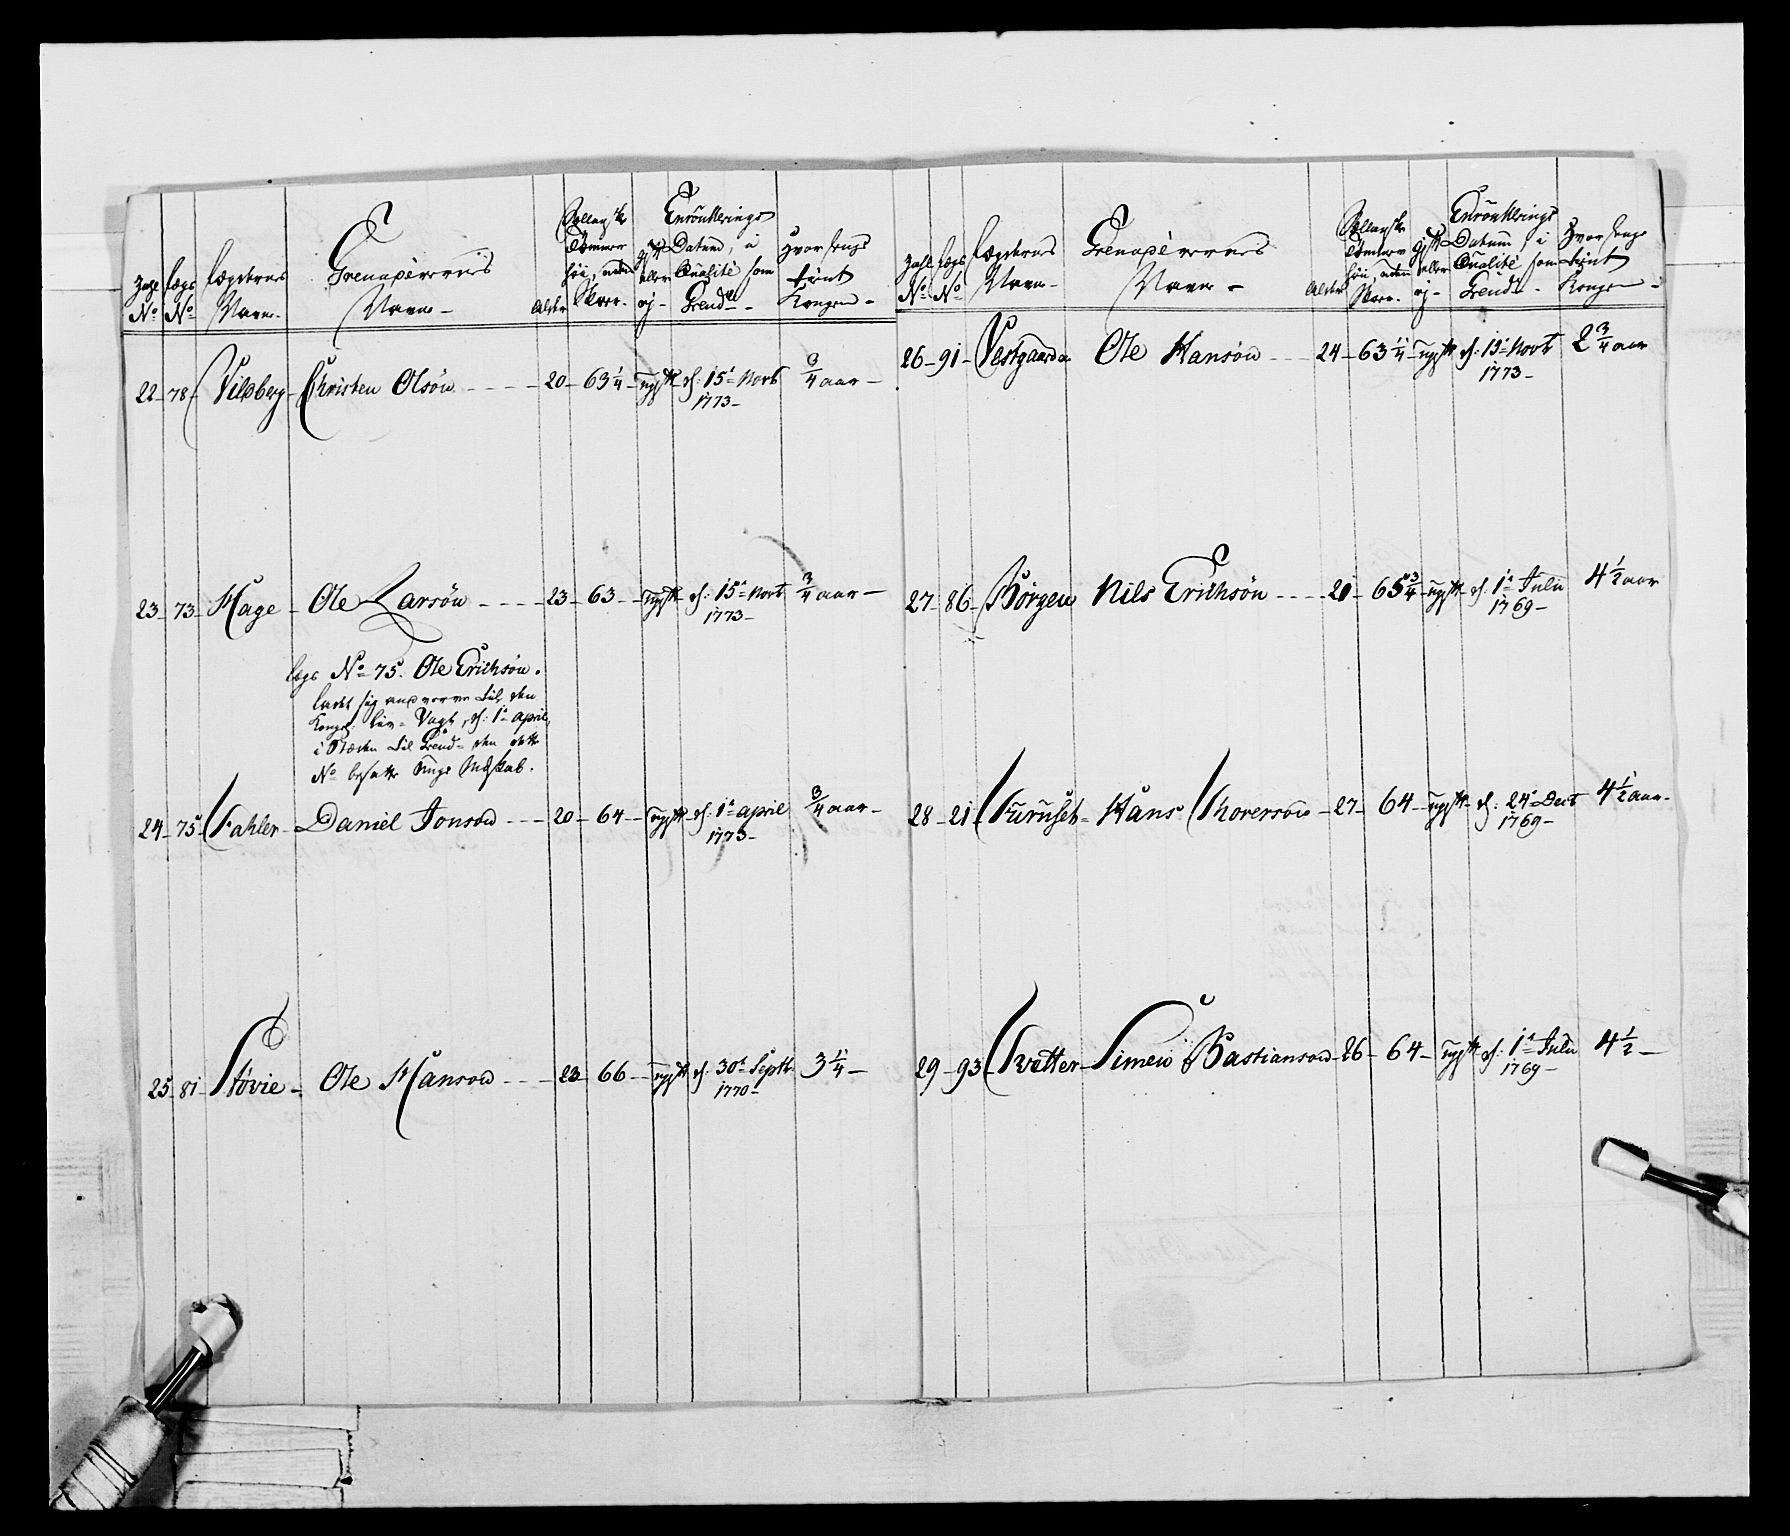 Zahl No
Lægs No
Lægdernes Navn
Grenaderernes Navn
Alder
Tommer høi, uden Skoer
gift eller ej
Enroullerings Datum, i Qualité som Grendr
Hvor længe tient Kongen
22 78 Vilberg Christen Olsön 20 63 1/4 ugift d: 15 Novb 1773 3/4 aar
23 73 Hage Ole Larsön 23 63 ugift d: 15 Novb 1773 3/4 aar
Lægs No 75. Ole Erichsön.
ladet sig anverve til den
Kongel: Liv-Vagt, d: 1 april,
i Stæden til Grend den dette
No besatte
24 75 Fahler Daniel Jonson 20 64 ugift d: 1 april 1773 3/4 aar
25 81 Støvie Ole Hanson 23 66 ugift d: 30 Septb 1770 3 1/4
Zahl No
Lægs No
Lægdernes Navn
Grenaderernes Navn
Alder
Tommer høi, uden Skoer
gift eller ej
Enroullerings Datum, i Qualité som Grendr
Hvor længe tient Kongen
26 91 Vestgaarden Ole Hansön 24 63 1/4 ugift d: 15 Novb 1773 2 3/4 aar
27 86 Börgen Nils Erichsön 21 65 3/4 ugift d: 1 Julii 1769 4 1/2 aar
28 21 Furuset Hans Thoverson 27 64 ugift d: 24 Dect 1769 4 1/2 aar
29 93 Tvetter Simen Bastianson 26 64 ugift d: 1 Julii 1769 4 1/2